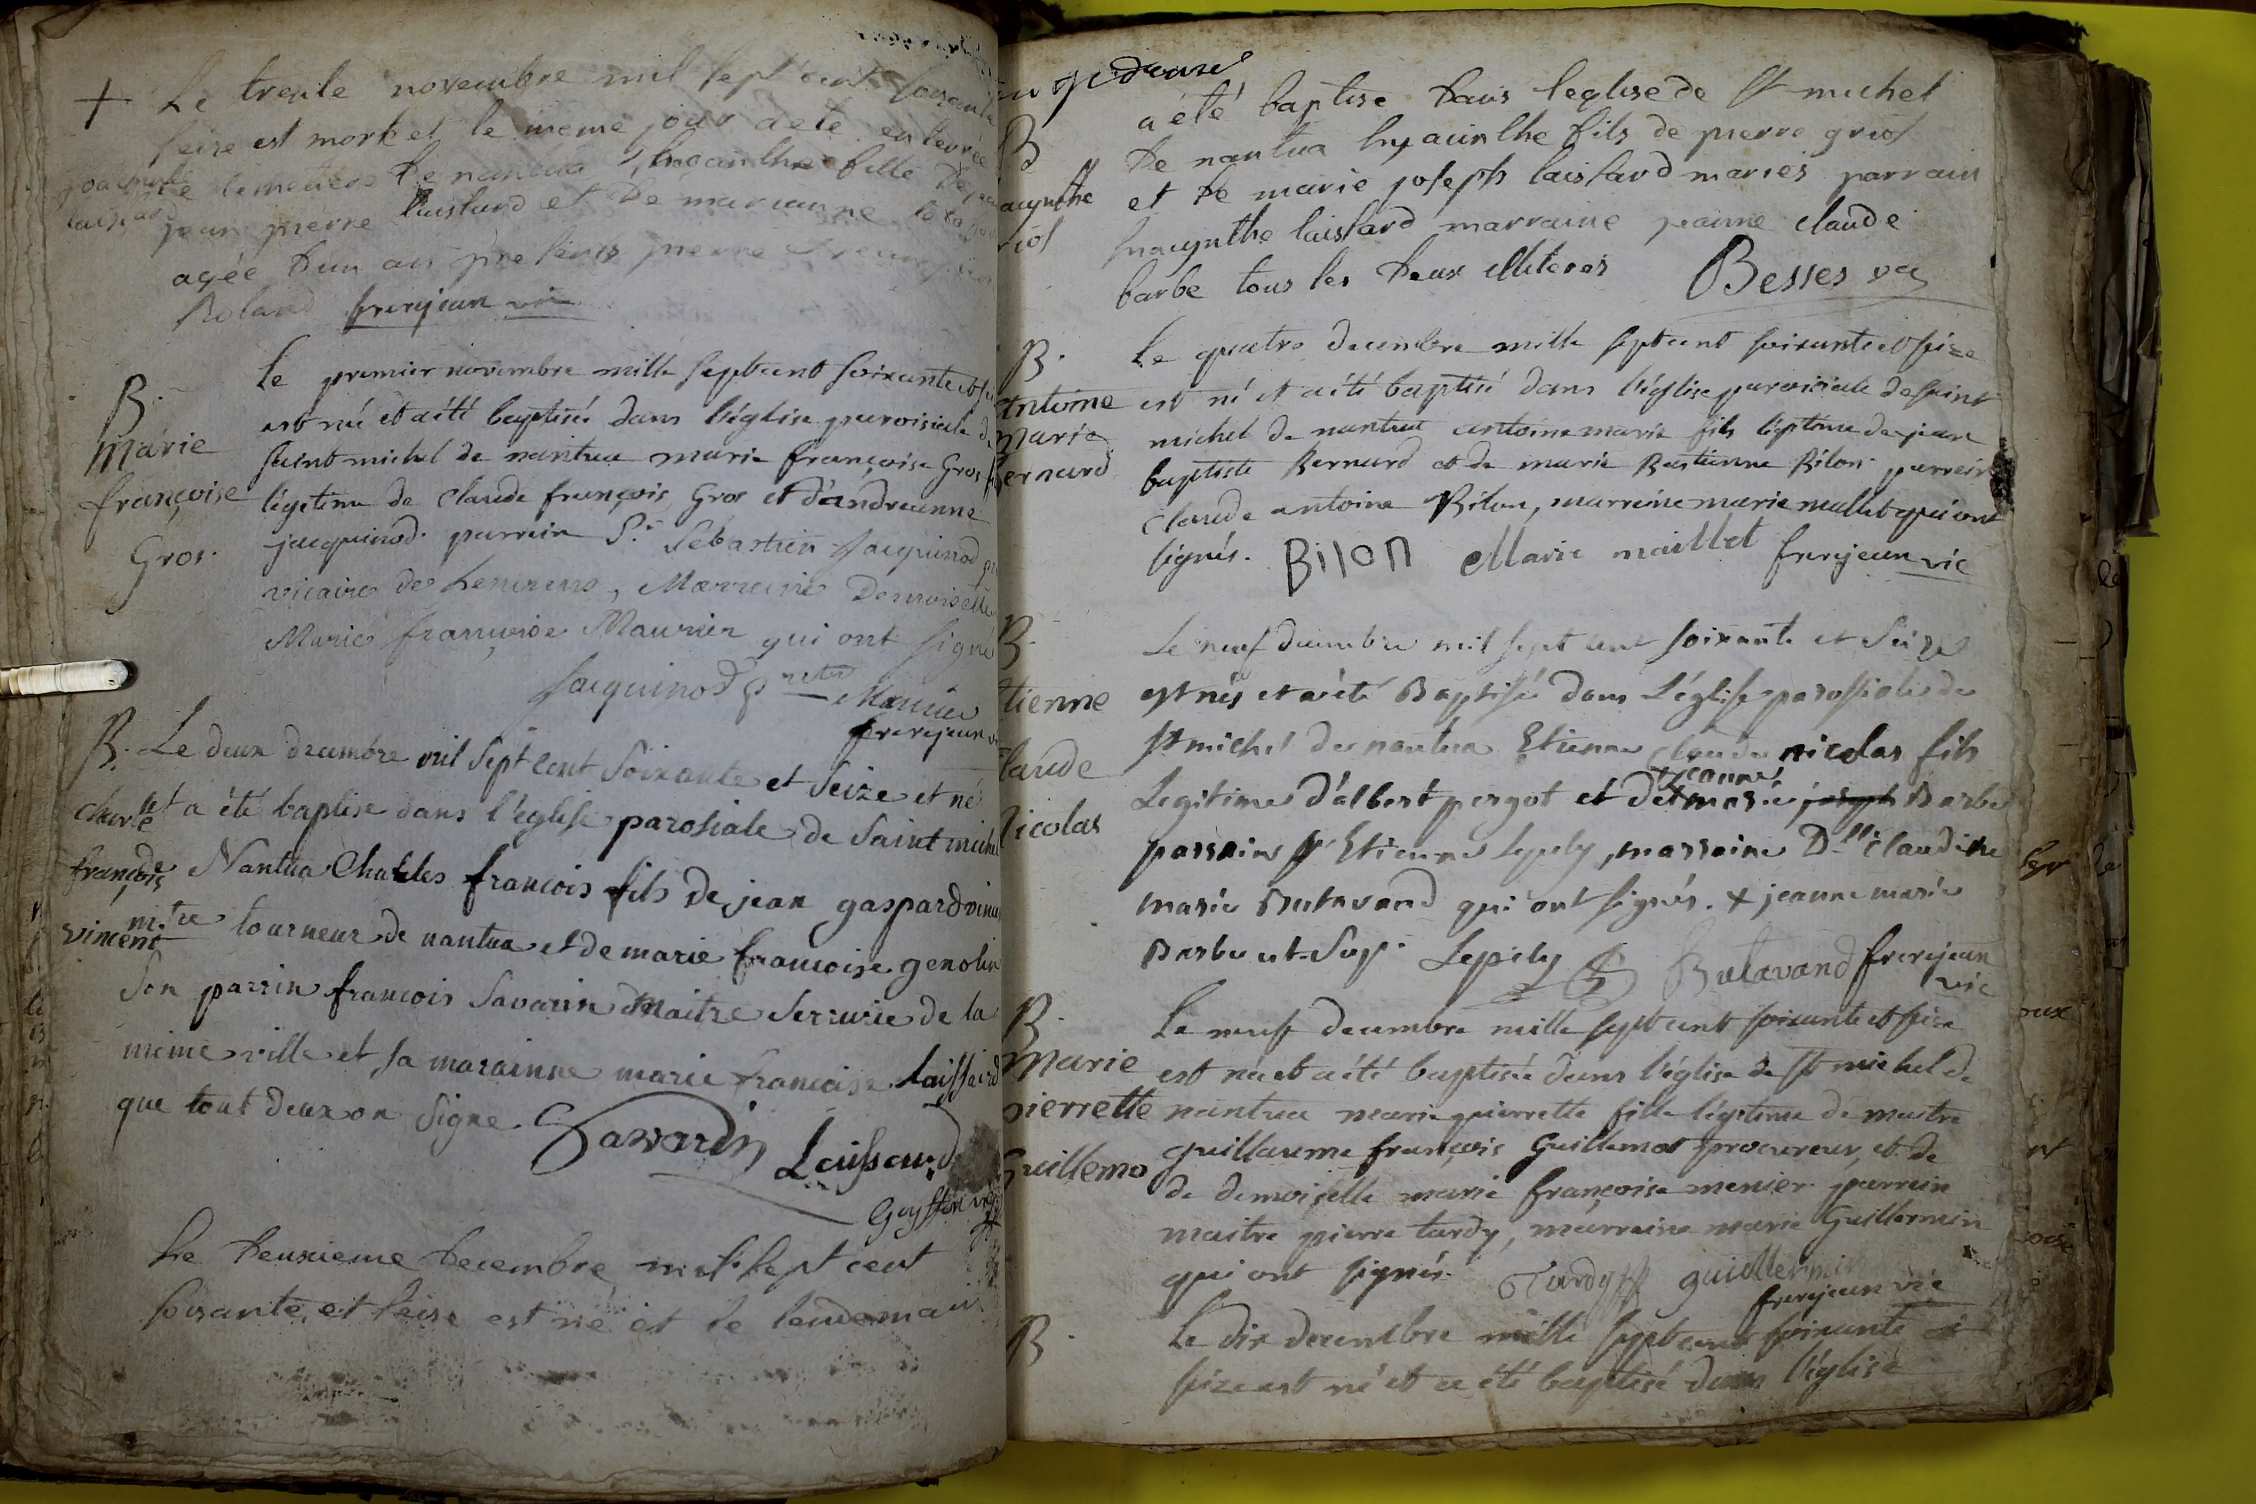 + Le trente novembre mil sept cent soisante
seize est morte et le meme jour a ete enterrée
cimetiere de nantua hyacinthe fille de
jean pierre laissard et de marianne
agée d'un an presens pierre
Roland frerejean vic
B.
marie
françoise
Gros.
Le premier novembre mille septcent soixante et
est née et a été baptisée dans l'église paroisiale de
saint michel de nantua marie françoise Gros
légitime de claude françois Gros et d'andreanne
jacquinod. parrein Sr. Sébastien Jacquinod
vicaire de , Marreine Demoiselle
Marie françoise Maurier qui ont signé
Jacquinod ptre Maurier
frerejean
B. Le deux decembre mil sept cent soixante et seize et né
et a été baptise dans l'église parosiale de saint michel
charle
françois
vincent
de Nantua Charles francois fils de jean gaspard vincent
m.tre tourneur de nantua et de marie francoise genolin
son parrin francois Savarin maitre serrurie de la
meme ville et sa marainne marie francoise laissard
que tout deux on signe Savarin
Laissard
Le deuxieme decembre mil sept cent
soisante et seise est né et le lendemain
a été baptise dans leglise de St michel
de nantua hyacinthe fils de pierre griot
et de marie joseph laissard mariés parrain
hyacynthe laissard marraine jeanne claude
barbe tous les deux illiteres Besses
B.
Antoine
Marie
Bernard
Le quatre decembre mille septcent soixante et seize
est né et a été baptisé dans l'église paroisiale de saint
michel de nantua antoine marie fils légitime de jean
baptiste Bernard et de marie Bastienne Bilon. parrein
claude antoine Bilon, marreine marie mallet qui ont
signés. Bilon Marie maillet frerejean vic
B.
tienne
laude
nicolas
Le neuf decembre mil sept cent soixante et seize
est nés et a été Baptisé dans L'église parossiale de
St michel de nantua Etienne claude nicolas fils
Legitime d'albert pergot et de + jeanne marie joseph Barbe
parrain Sr Etienne Lepely, marraine D.lle claudine
marie Butavand qui ont signés. + jeanne marie
Barbe ut sup. Lepely Butavand frerejean
vic
B.
Marie
pierrette
Guillemo
Le neuf decembre mille septcent soixante et seize
est née et a été baptisée dans l'église de St michel de
nantua marie pierrette fille légitime de maitre
guillaume françois Guillemot procureur, et de
de demoiselle marie françoise menier parrein
maitre pierre tardy, marraine marie Guillermin
qui ont signés. Tardy guillermin
frerejean vic
B.
Le dix decembre mille septcent soixante et
seize est né et a été baptisé dans l'église